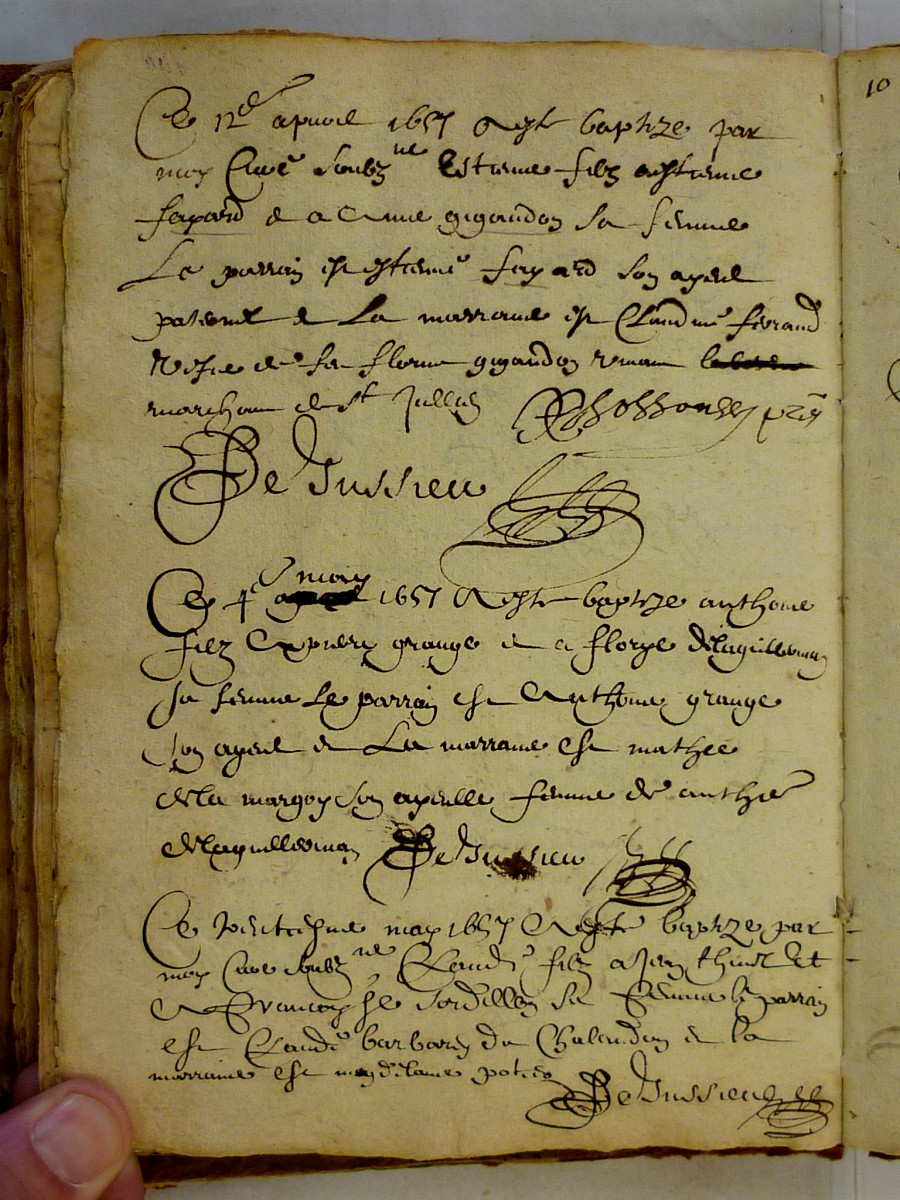 Ce 12e apvril 1657 A este baptize par
moy Curé soubz ne Estienne filz a estienne
fayard e a Anne gigandon sa femme
Le parrain est estienne fayard son ayeul
paternel e La marraine est Claudine ferrand
de feu florin gigandon vivant
marchant de St Jullien prnt
De Jussieu
Ce 4e may 1657 A este baptize anthoine
filz A pierre grange e a florye delaguillermy
sa femme Le parrain est Anthoine grange
son ayeul e La marraine est mathee
de la margoy son ayeulle femme de anthoine
delaguillermy De Jussieu
Ce huictiesme may 1657 A este baptize par
moy Cure soubz ne Claude filz a Jean et
A Francoyse sordillon sa femme le parrain
est Claude barbarin de Chalendon e la
marraine est magdelaine potier
De Jussieu
10